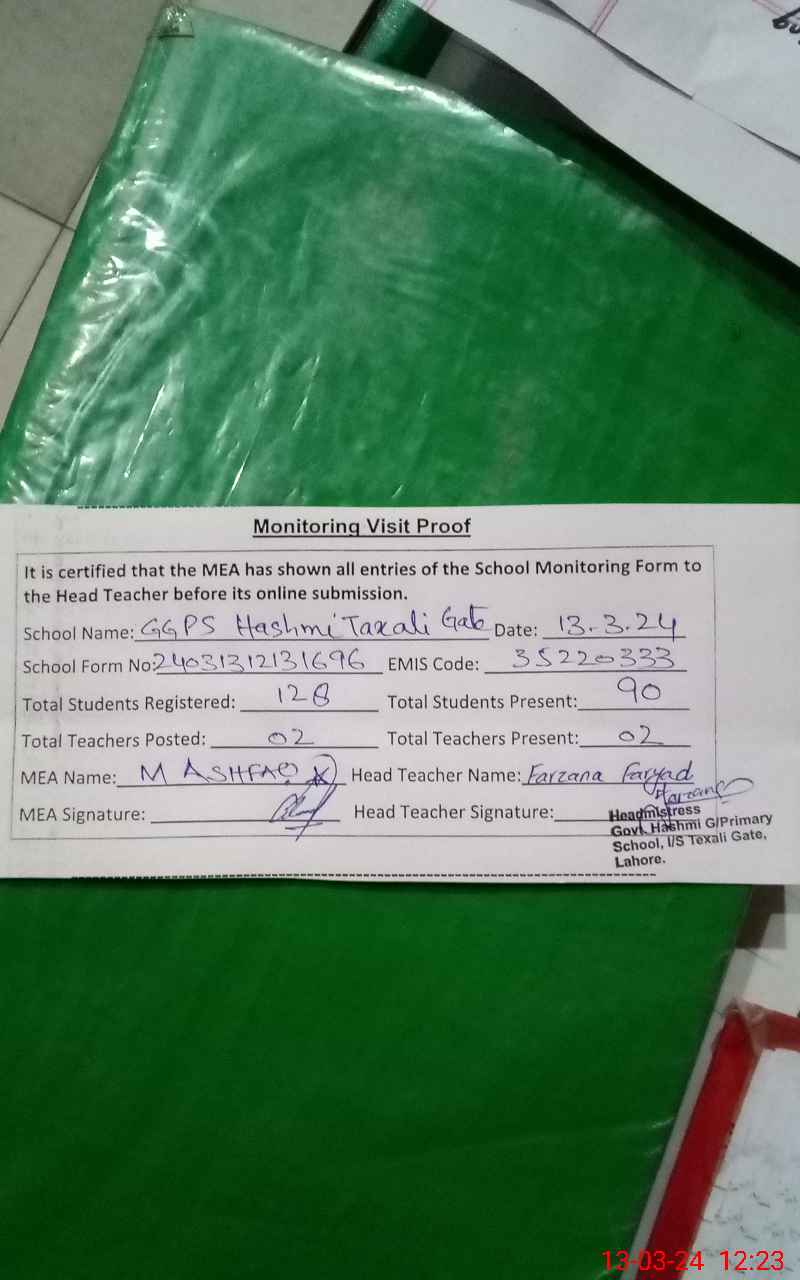 Monitoring Visit Proof
It is certified that the MEA has shown all entries of the School Monitoring Form to
the Head Teacher before its online submission.
School Name: GGPS Hashmi Taxali Gate Date: 13-3-24
School Form No: 2403131213 1696 EMIS Code: 35220333
Total Students Registered: 128 Total Students Present: 90
Total Teachers Posted: 02 Total Teachers Present: 02
MEA Name: M ASHFAQ Head Teacher Name: Farzana Faryad
MEA Signature: Head Teacher Signature: Farzana
Headmistress
Govt. Hashmi G/Primary
School, I/S Texali Gate,
Lahore.
13-03-24 12:23